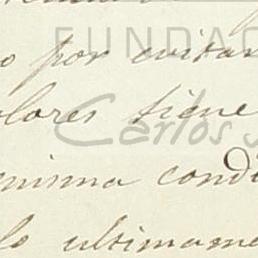 FUNDAC
o por evitar
olores tiene
Carlos S
misma condi
lo ultimame